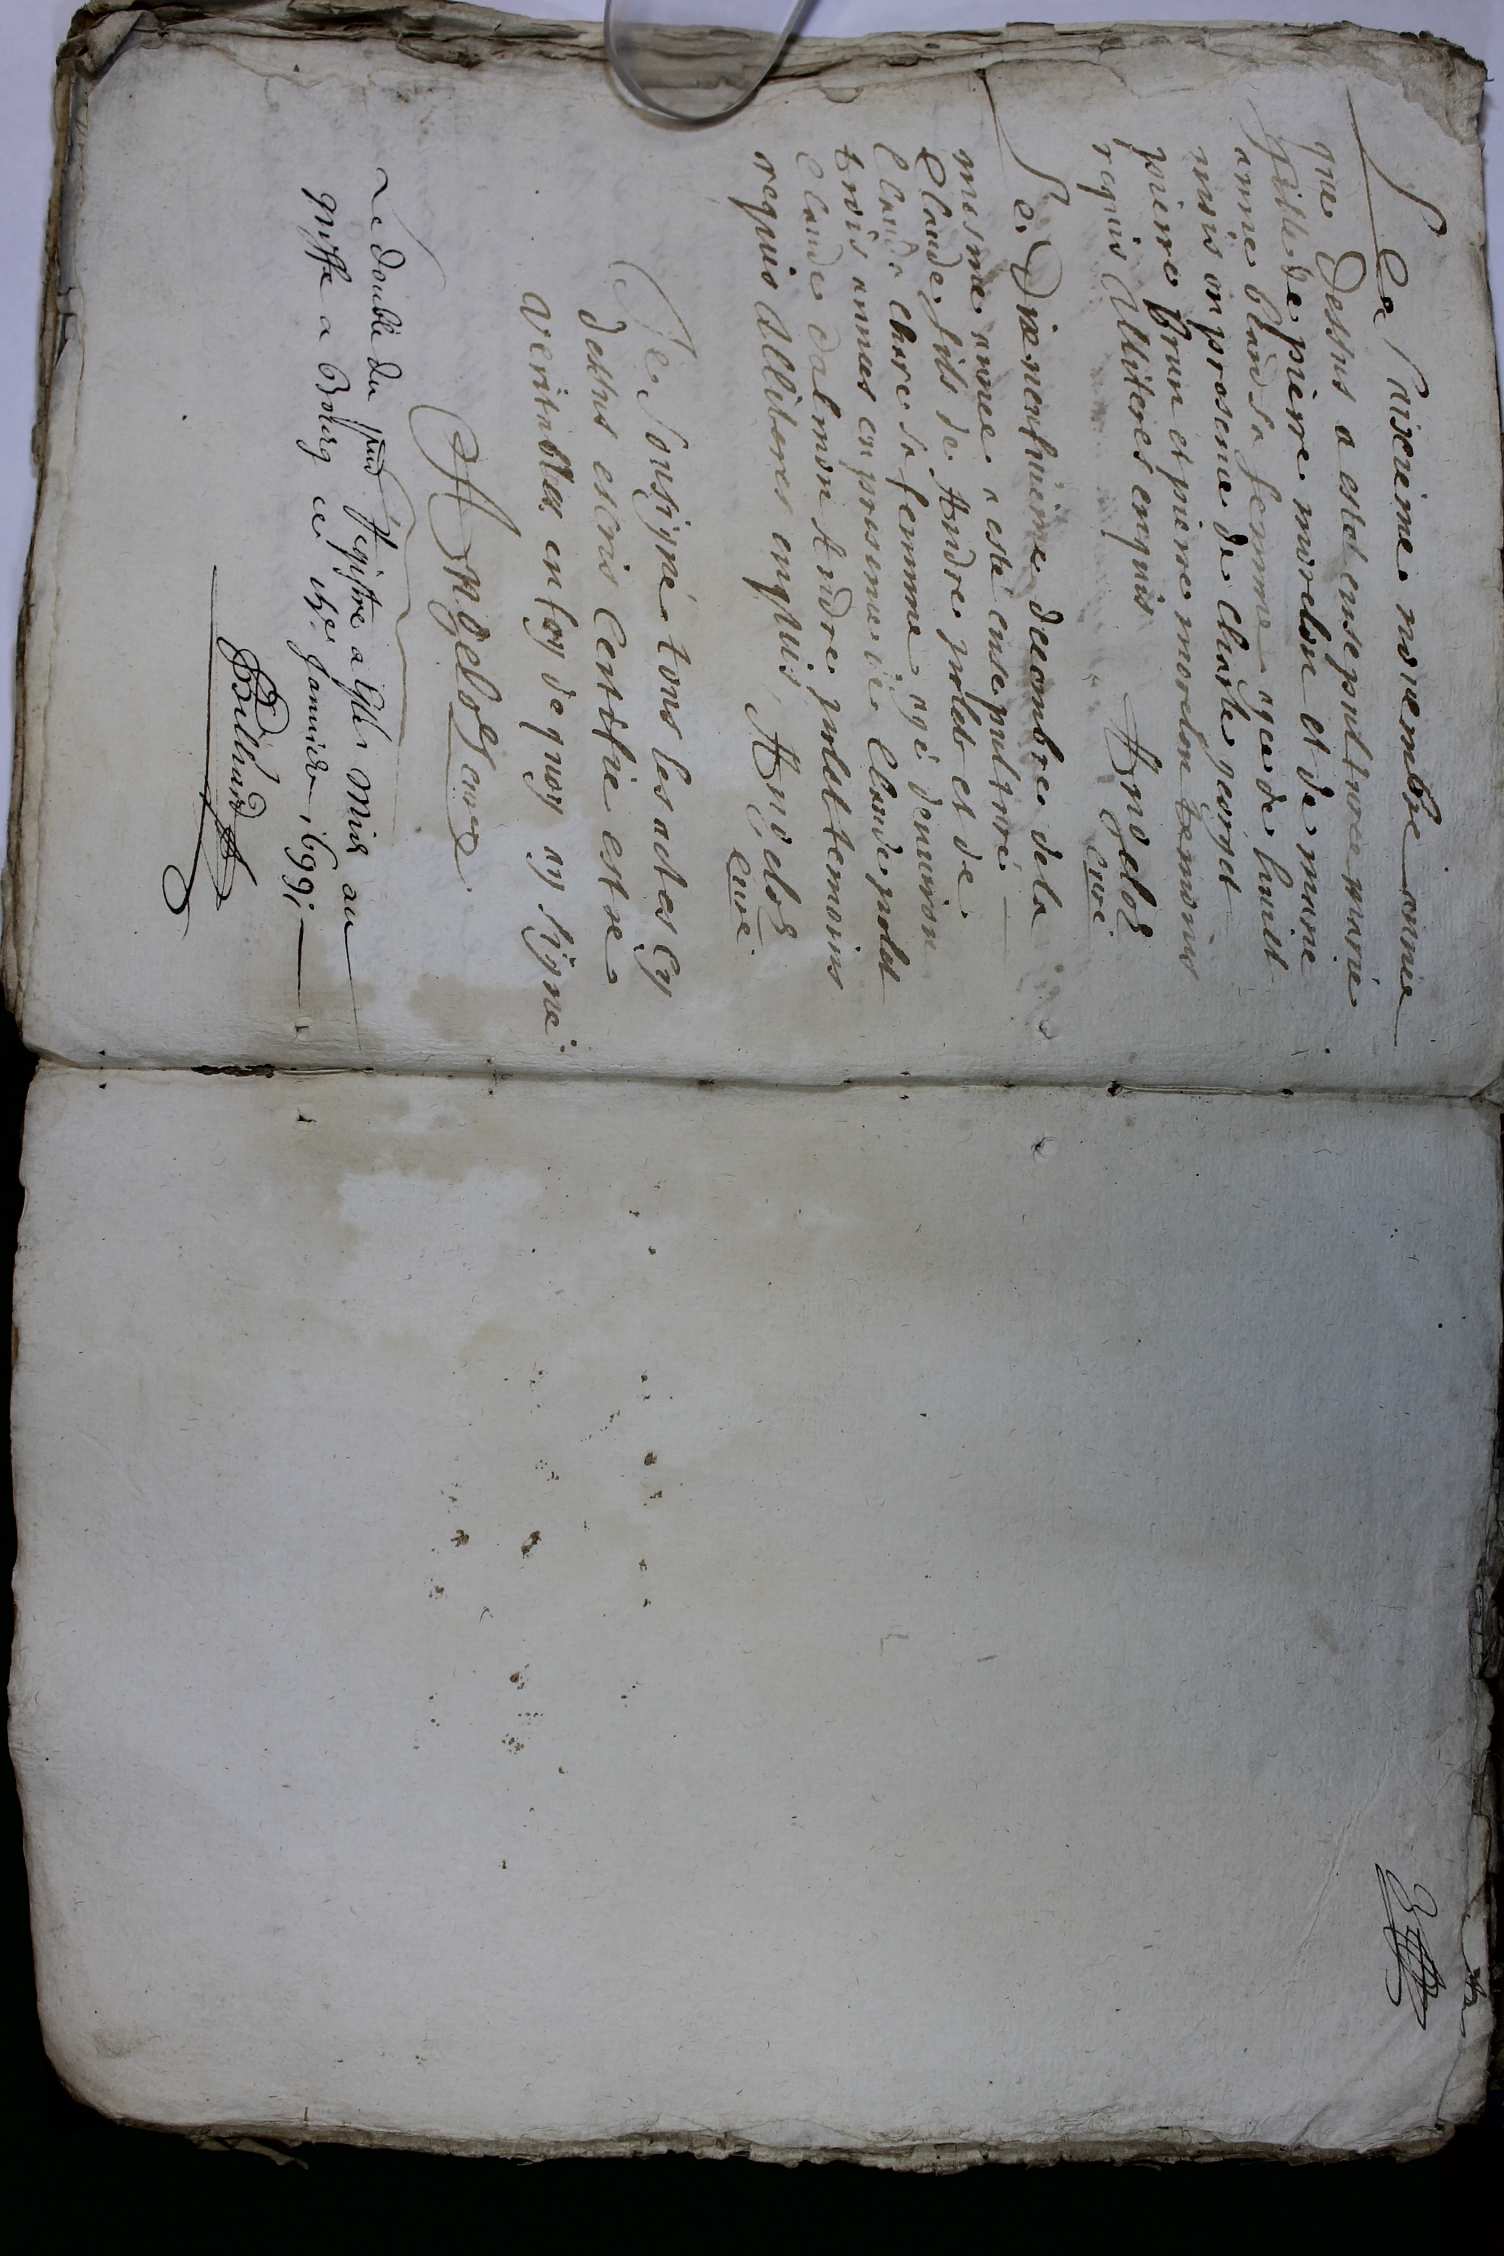 Le saixieme novembre annee
que dessus a esteé ensepulturee marie
fille de pierre morelon et de marie
anne blandsa femme agee de huict
mois en presence de charle georget
pierre Brun et pierre morelon temoins
requis Illiteres enquis Angelot
curé
Le dixneufuieme decembre de la
mesme annee a esté ensepulturé
Claude fils de Andre polet et de
Claude chare sa femme agé denuiron
trois annees en presence de Claude polet
Claude dalmon Andre polet temoins
requis Illiteres enquis Angelot
curé
Je sousigné tous les actes cy
dessus escris Certifie estre
veritables en foy de quoy ay signé
Angelot curé
Le double du pnt Registre a esté mis au
greffe a Bourg ce janvier 1691
Billiard